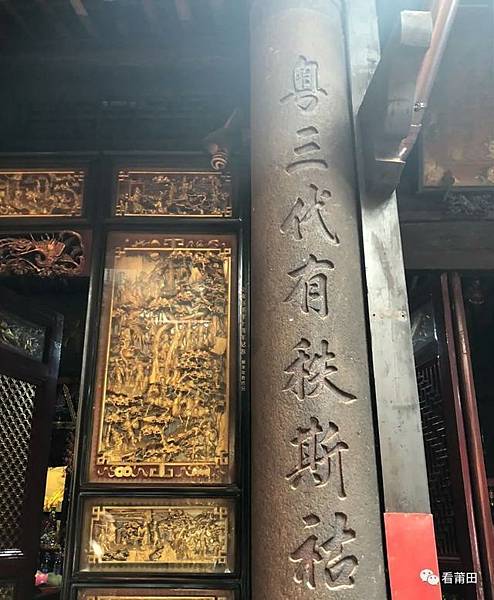 粤三代有秩斯祜
看莆田